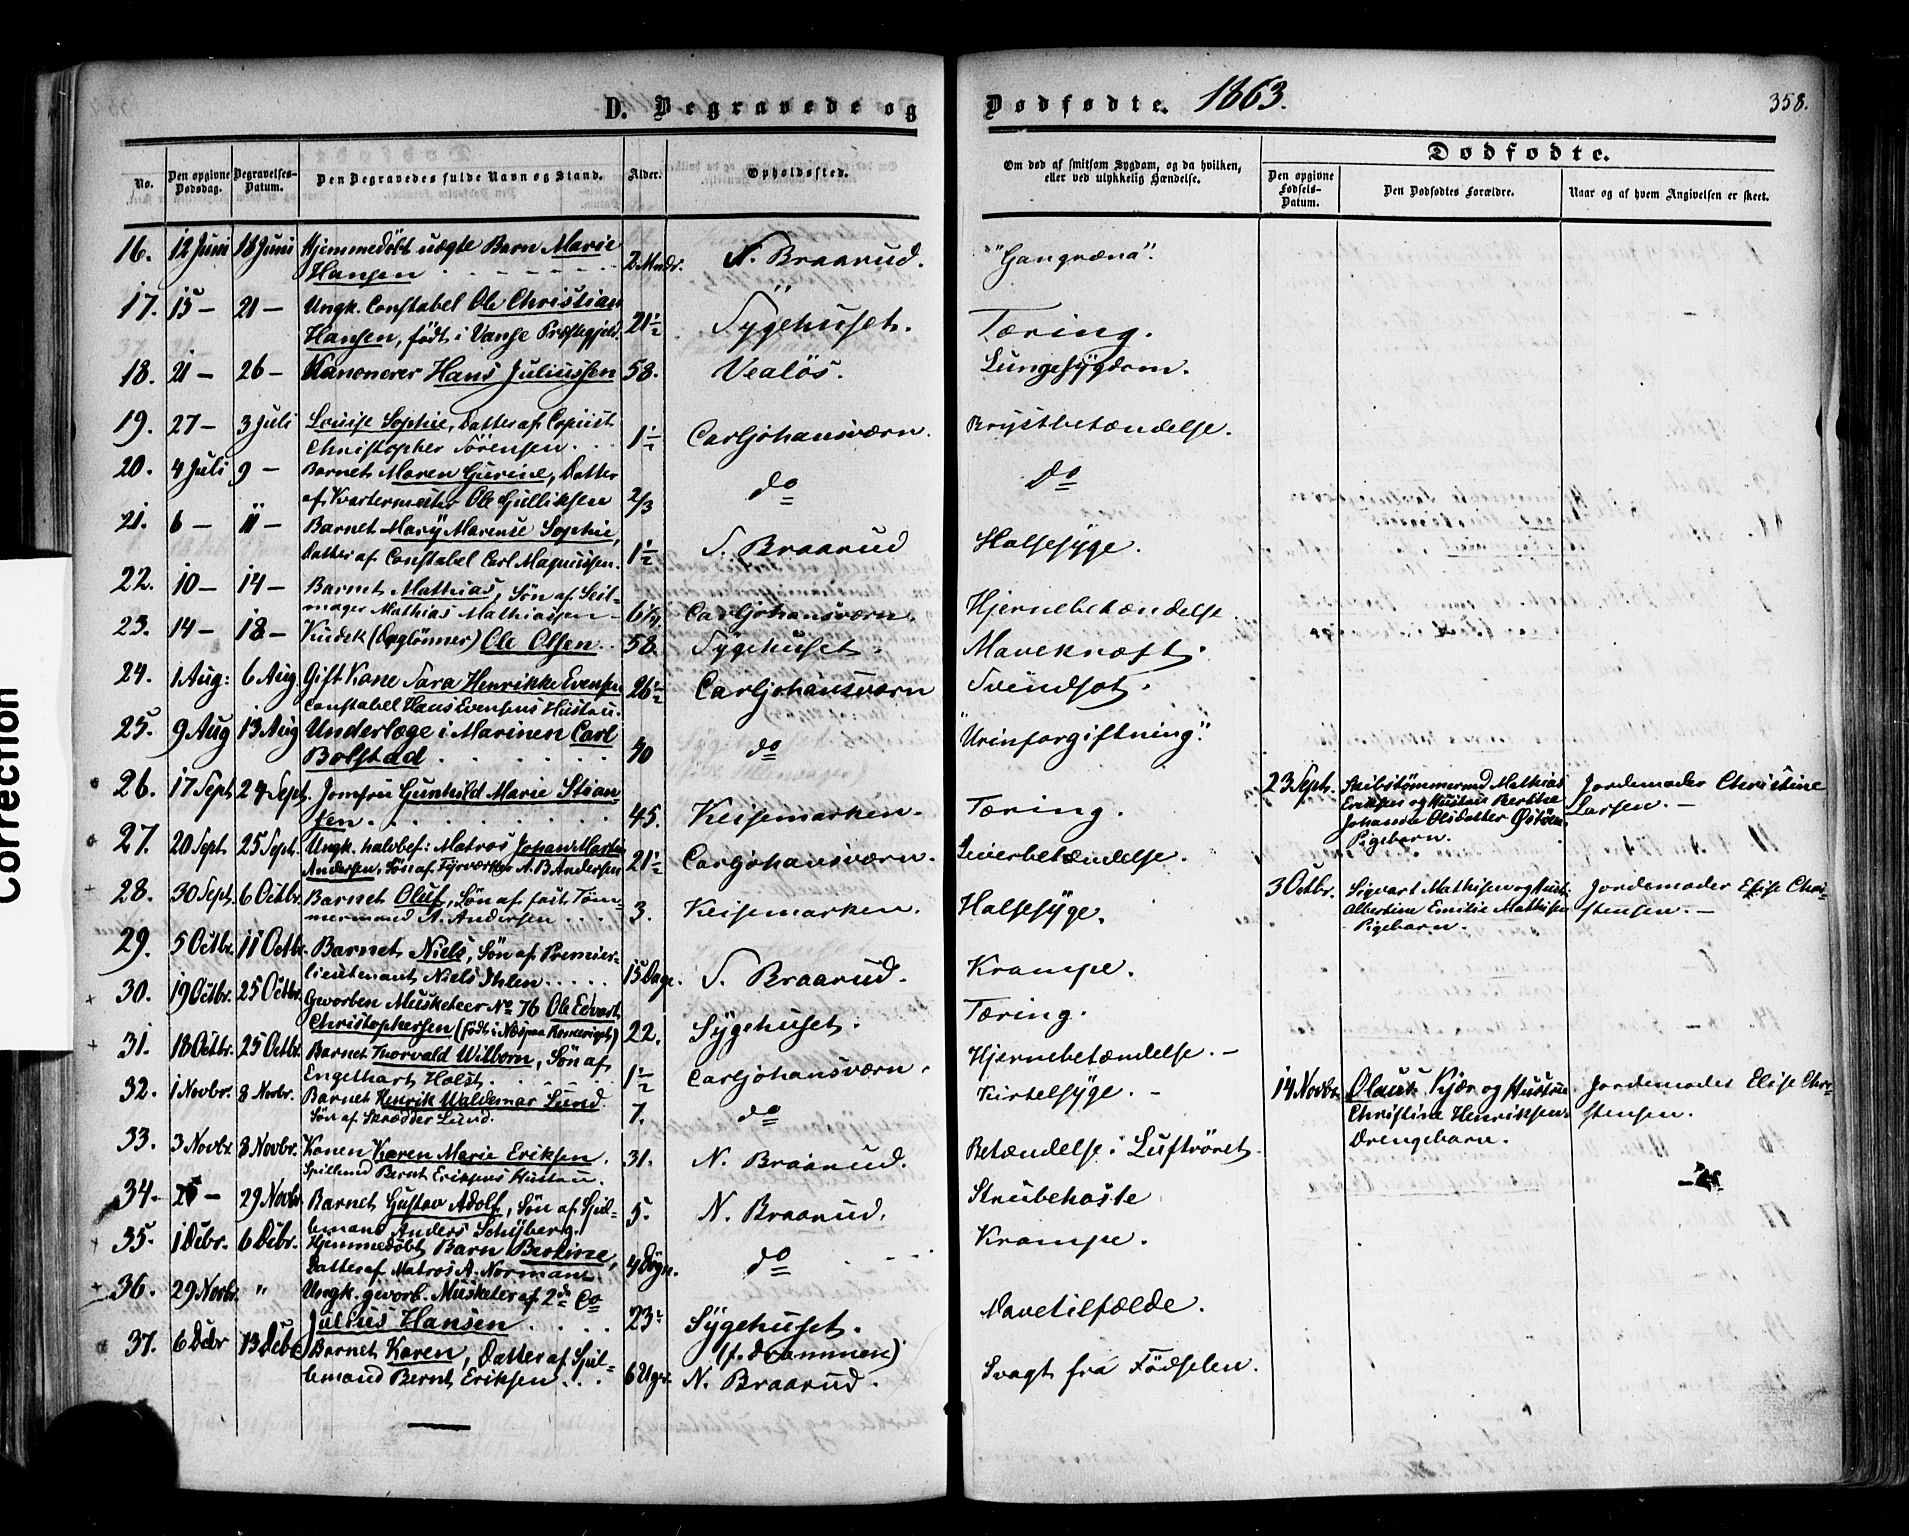 D. Begravede og
Dødfødte. 1863.
358.
No.
Den opgivne Dødsdag.
Begravelses-Datum.
Den Begravedes fulde Navn og Stand.
Alder.
Opholdssted.
Om død af smitsom Sygdom, og da hvilken, eller ved ulykkelig Hændelse.
Dødfødte.
Den opgivne Fødsels-Datum.
Den Dødfødtes Forældre.
Naar og af hvem Angivelsen er skeet.
16. 12 Juni 18 Juni Hjemmedöbt uægte Barn Marie
Hansen 2 Mndr. N. Braarud. "Gangræna".
17. 15 — 21 — Ungk. Constabel Ole Christian
Hansen, födt i Vanse Præstegjeld. 21½ Sygehuset. Tæring.
18. 21 — 26 — Kanonerer Hans Juliussen 58. Vealös. Lungesygdom.
19. 27 — 3 Juli Louise Sophie, Datter af Copiist
Christopher Sörensen 1½ Carljohansværn. Brystbetændelse.
20. 4 Juli 9 — Barnet Maren Gurine, Datter
af Kvartermester Ole Gulliksen 2/3 do Do
21. 6 — 11 — Barnet Mary Marense Sophie,
Datter af Constabel Carl Magnussen. 1½ S. Braarud Halsesyge.
22. 10 — 14 — Barnet Mathias, Sön af Seil-
mager Mathias Mathiassen Carljohansværn. Hjernebetændelse
23. 14 — 18 — (Daglönner) Ole Olsen 58. Sygehuset. Mavekræft.
24. 1 Aug: 6 Aug. Gift Kone Sara Henrikke Evensen
Constabel Hans Evensens Hustru. 26½ Carljohansværn Svindsot.
25. 9 Aug 13 Aug Underlæge i Marinen Carl
Bolstad 40 do "Urinforgiftning".
26. 17 Sept 24 Sept. Jomfru Gunhild Marie Stian
sen 45. Keisemarken. Tæring.
23 Sept. Skibstömmermd Mathias
Eriksen og Hustru Berthe
Johanne Olsdatter
Pigebarn.
Jordemoder Christine
Larsen. —
27. 20 Sept 25 Sept. Ungk. halvbef: Matros Johan Martin
Andersen, Sön af Fyrværker A. B. Andersen 21½ Carljohansværn. Leverbetændelse.
28. 30 Sept. 6 Octbr. Barnet Oluf, Sön af fast Töm-
mermand A. Andersen 3. Keisemarken. Halsesyge.
3 Octbr. Sigvart Mathisen og Hust.
Albertine Emilie Mathisen
Pigebarn.
Jordemoder Elise Chri-
stensen. —
29. 5 Octbr. 11 Octbr. Barnet Niels, Sön af Premier-
lieutenant Niels Ihlen 15 Dage. S. Braarud. Krampe.
30. 19 Octbr. 25 Octbr. Gworben Musketeer No 76 Ole Edvart
Christophersen (födt i Næs paa Romerige) 22. Sygehuset. Tæring.
31. 18 Octbr. 25 Octbr. Barnet Thorvald Wilborn, Sön af
Engelhart Holst. 1½ Carljohansværn. Hjernebetændelse. —
32. 1 Novbr. 8 Novbr. Barnet Henrik Waldemar Lund.
Sön af Skrædder Lund. 7. do Kirtelsyge. —
14 Novbr. Olaus Kjær og Hustru
Christine Henriksen.
Drengebarn.
Jordemoder Elise Chri-
stensen.
33. 3 Novbr. 8 Novbr. Konen Karen Marie Eriksen.
Spillemd Bernt Eriksens Hustru. 31. N. Braarud. Betændelse i Luftröret.
34. — 29 Novbr. Barnet Gustav Adolf, Sön af Spil-
lemand Anders Schyberg. 5. N. Braarud. Strubehoste
35. 1 Debr. 6 Debr. Hjemmedöbt Barn Berline,
Datter af Matros A. Normann. 4 Dögn. do Krampe.
36. 29 Novbr. " Ungk. gworb. Musketer af 2de Co
Julius Hansen 23 Sygehuset. (f. Drammen) Mavetilfælde.
37. 6 Debr 13 Debr Barnet Karen, Datter af Spil-
lemand Bernt Eriksen 6 Uger. N. Braarud. Svagt fra Födselen.
Correction